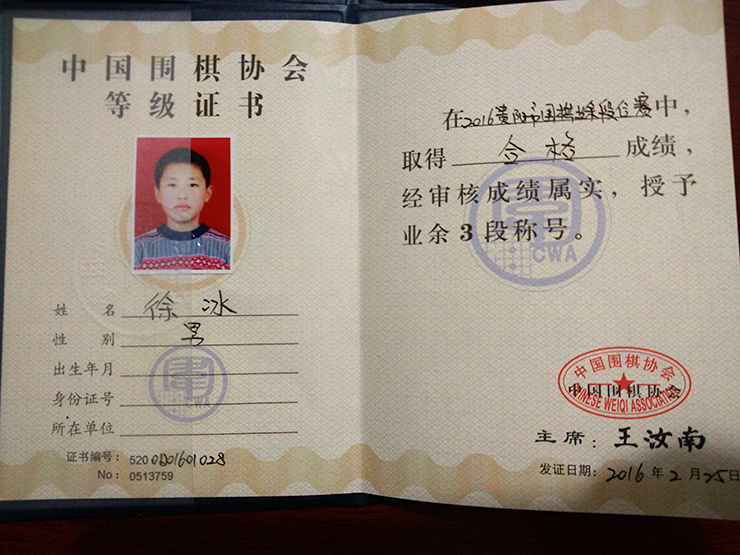 中国围棋协会
等级证书
姓名 徐冰
性别 男
出生年月
身份证号
所在单位
证书编号：5200D01601028
No：0513759
CWA
在2016贵阳市围棋业余段位赛中，
取得 合格 成绩，
经审核成绩属实，授予
业余3段称号。
CWA
中国围棋协会
中国围棋协会
CHINESE WEIQI ASSOCIATION
主席：王汝南
发证日期：2016年2月25日